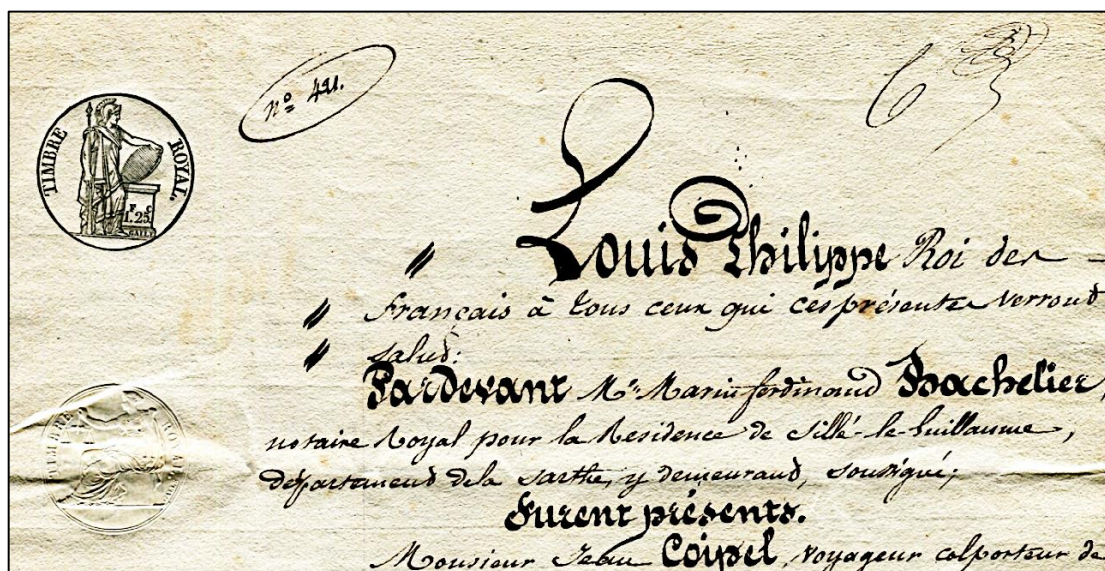 N° 421.
TIMBRE ROYAL.
F C
1.25
TIMBRE ROYAL
" Louis Philippe Roi des
" français à tous ceux qui ces présentes verront
" salut:
Pardevant Me Marin ferdinand Bachelier,
notaire Royal pour la Résidence de Sillé-le-Guillaume,
département de la Sarthe, y demeurant, soussigné;
Furent présents.
Monsieur Jean Coipel, voyageur colporteur de